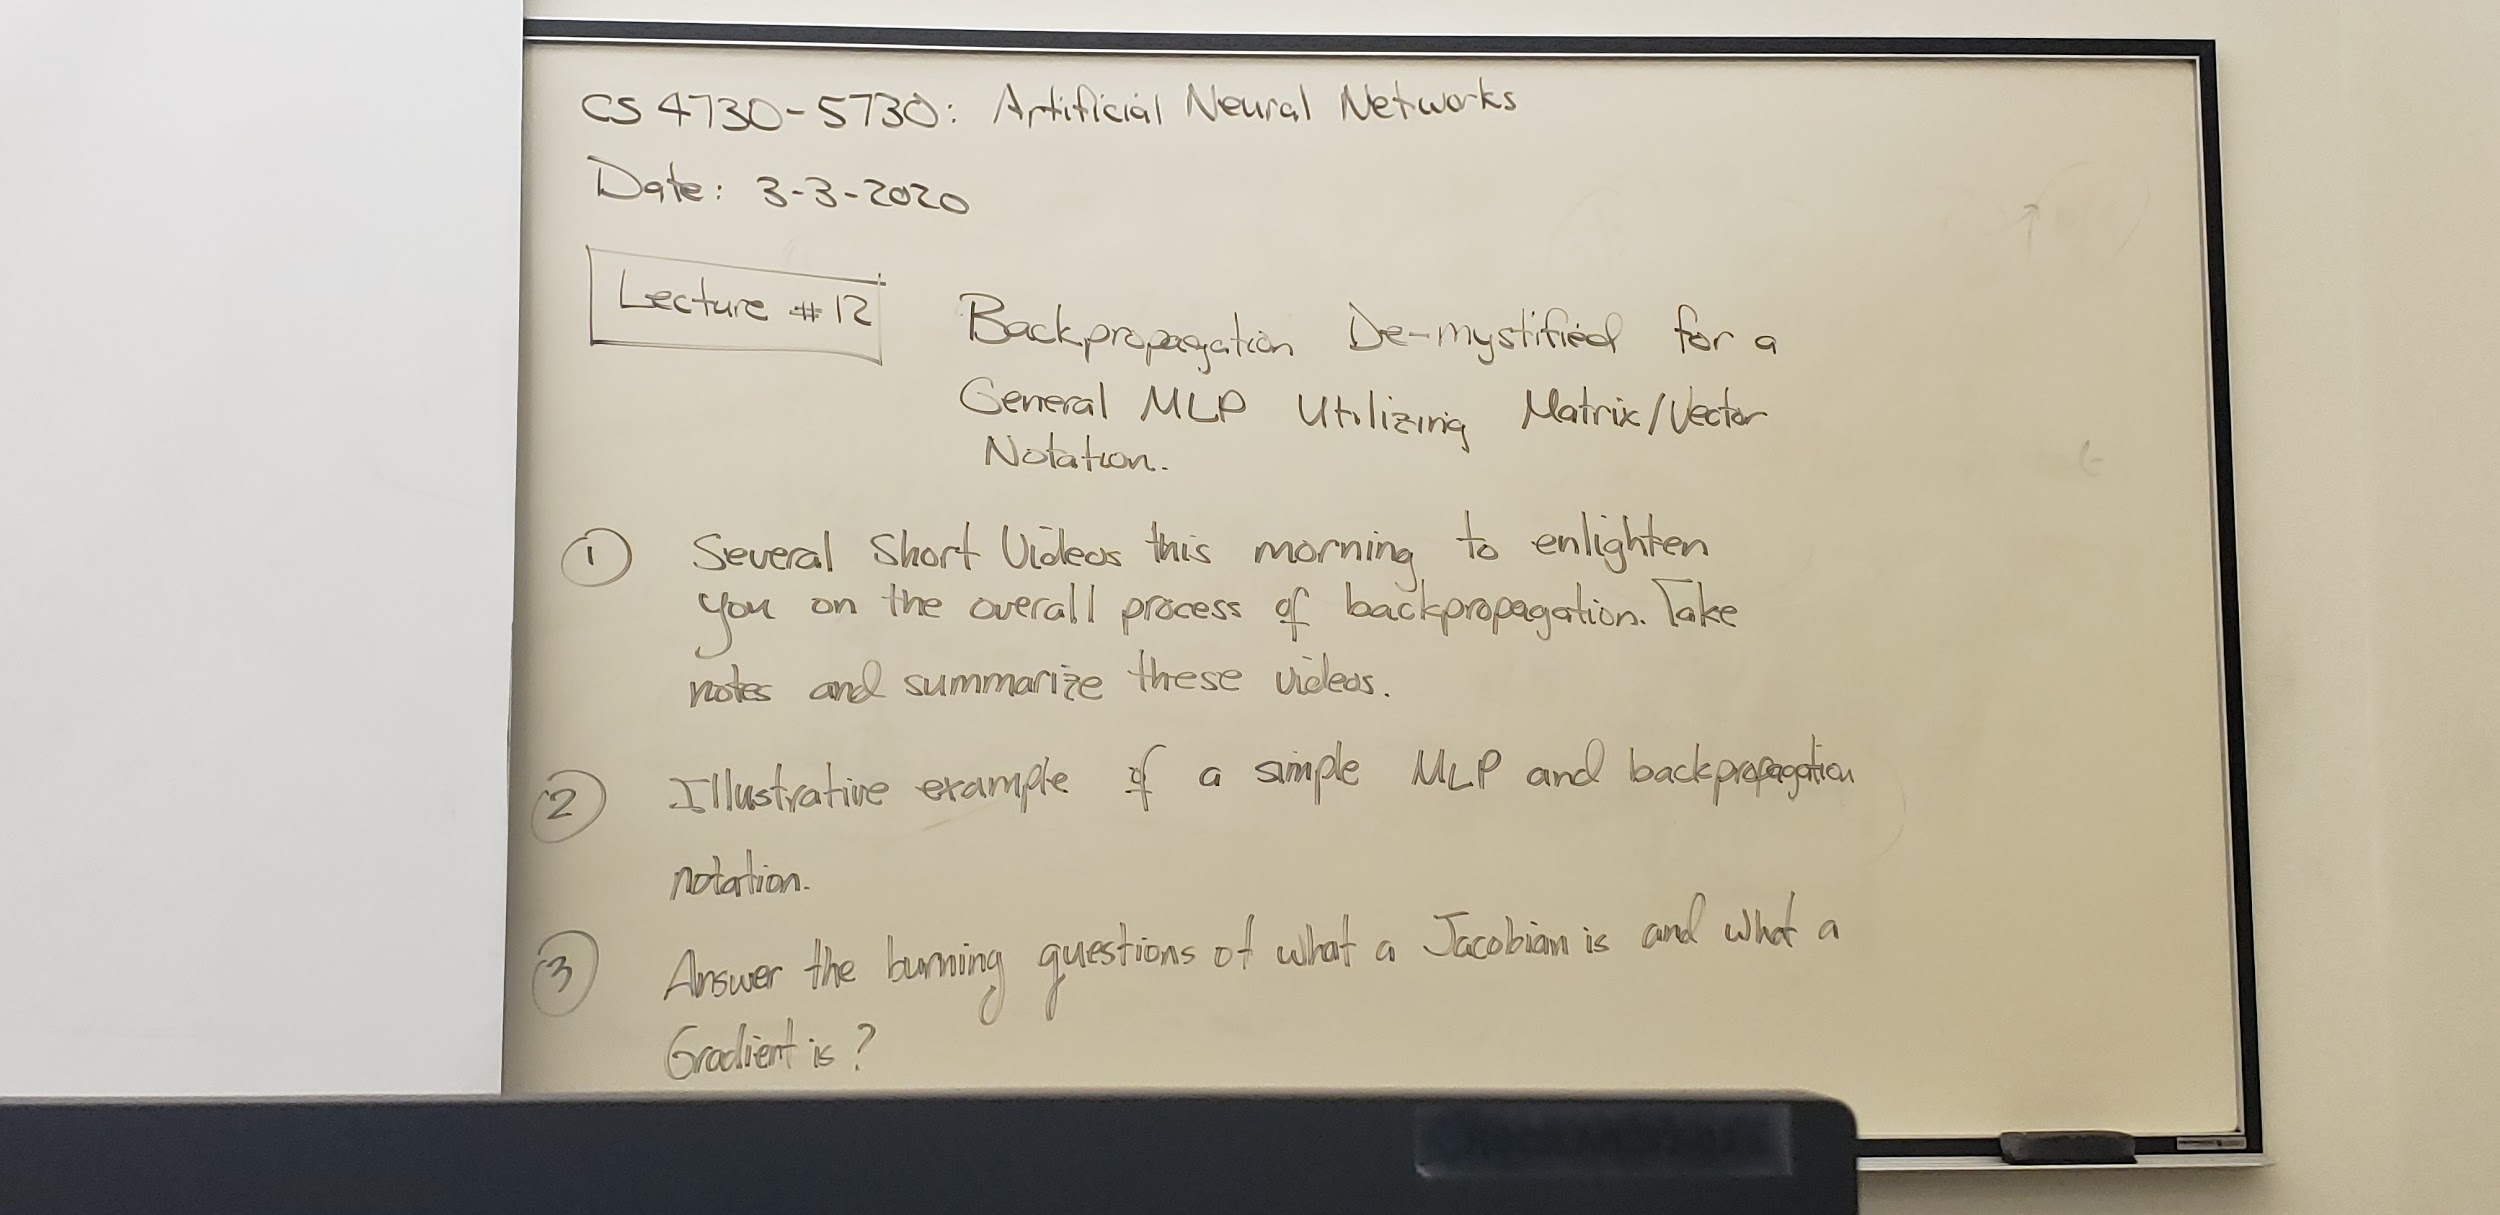 CS 4730-5730: Artificial Neural Networks
Date: 3-3-2020
Lecture #12
Backpropagation De-mystified for a
General MLP Utilizing Matrix/Vector
Notation.
1 Several Short Videos this morning to enlighten
you on the overall process of backpropagation. Take
notes and summarize these videos.
2 Illustrative example of a simple MLP and backpropagation
notation.
3 Answer the burning questions of what a Jacobian is and what a
Gradient is?